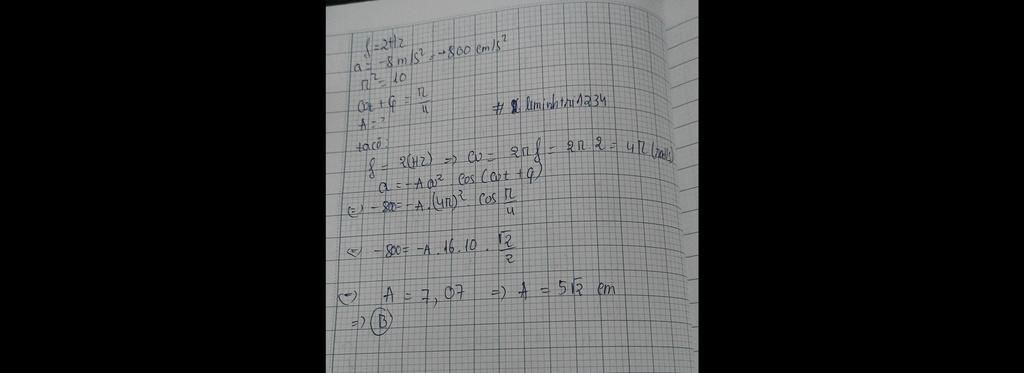 f = 2Hz
a = -8m/s² = -800 cm/s²
π² = 10
ωt + φ = π/4
A = ?
# leminhthu1234
ta có:
f = 2(Hz) => ω = 2πf = 2π.2 = 4π (rad/s)
a = -Aω² cos(ωt + φ)
(=) -800 = -A.(4π)² cos π/4
(=) -800 = -A.16.10.√2/2
(=) A = 7,07 => A = 5√2 cm
=> B